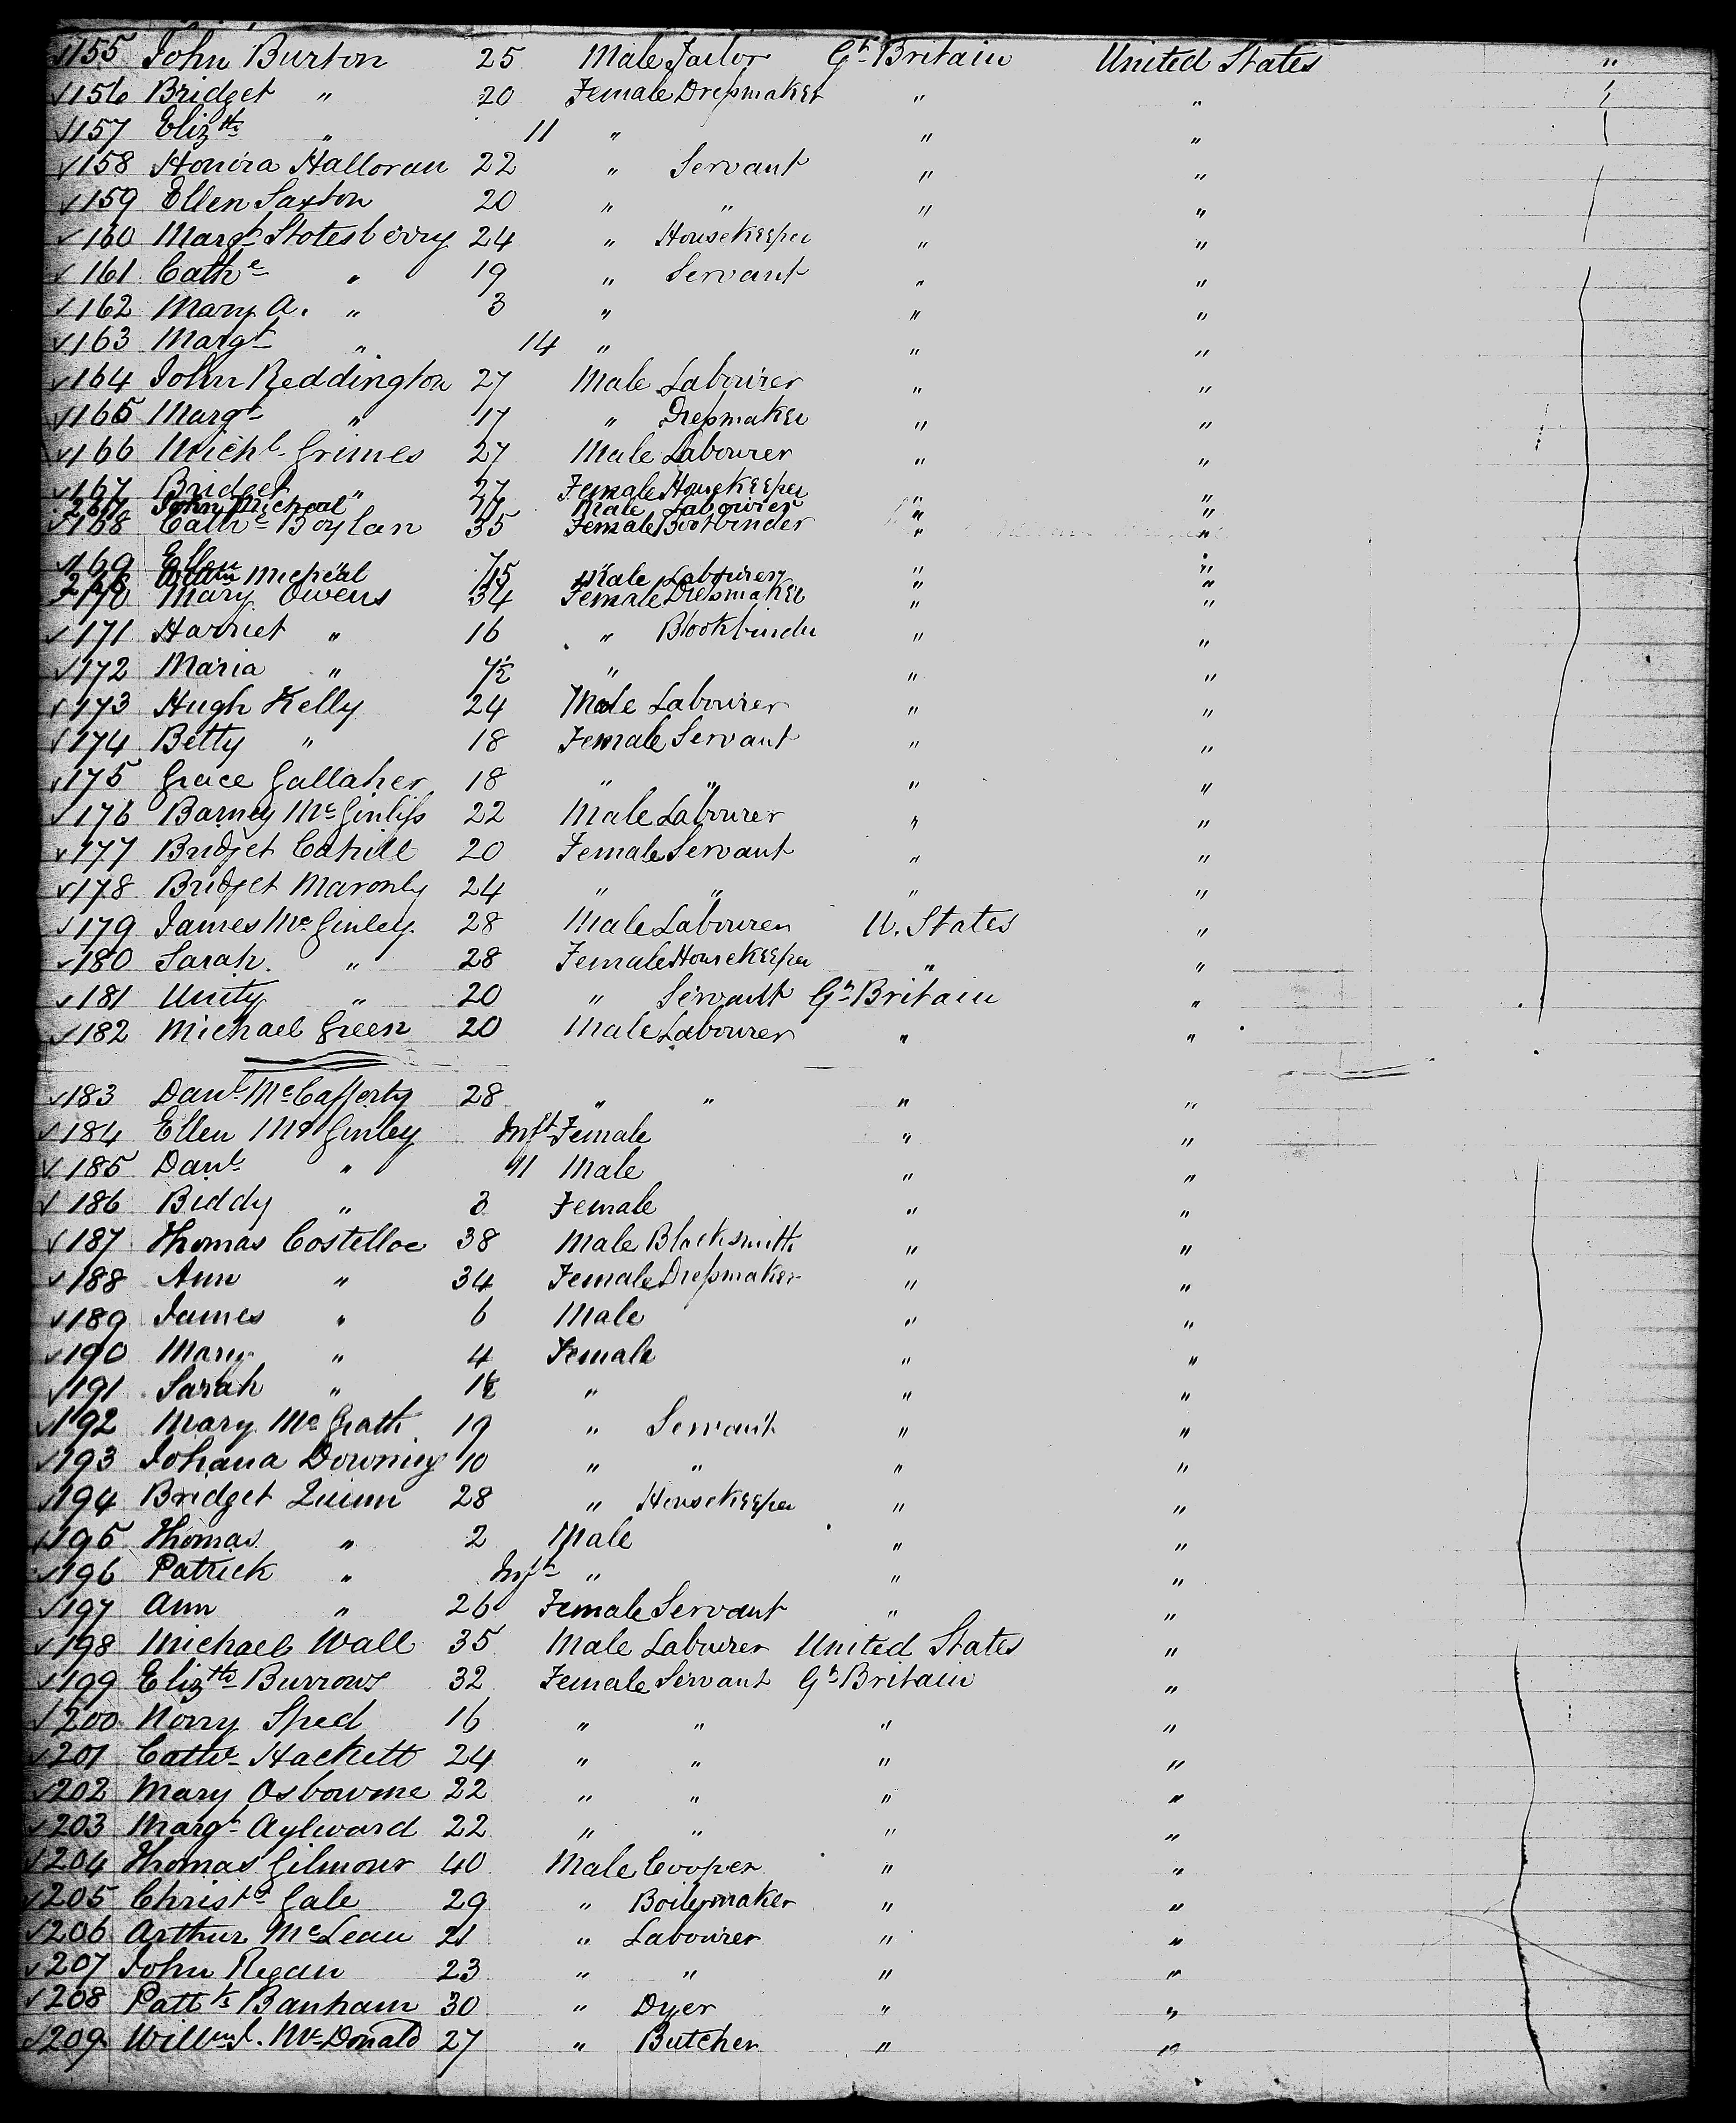 155 John Burton 25 Male Tailor Gt Britain United States "
156 Bridget " 20 Female Dressmaker " "
157 Elizth " 11 " " "
158 Honora Halloran 22 " Servant " "
159 Ellen Saxton 20 " " " "
160 Margt Stotesberry 24 " Housekeeper " "
161 Cathe " 19 " Servant " "
162 Mary A. " 3 " " "
163 Margt " 14 " " "
164 John Reddington 27 Male Labourer " "
165 Margt " 17 " Dressmaker " "
166 Michl Grimes 27 Male Labourer " "
167 Bridget " 27 Female Housekeeper " "
267 John Micheal Male Labourer " "
168 Cathe Boylan 35 Female Bookbinder " "
169 Ellen " "
268 Micheal Male Labourer " "
170 Mary Owens 34 Female Dressmaker " "
171 Harriet " 16 " Bookbinder " "
172 Maria " " " "
173 Hugh Kelly 24 Male Labourer " "
174 Betty " 18 Female Servant " "
175 Grace Gallaher 18 " " " "
176 Barney McGinliss 22 Male Labourer " "
177 Bridget Cahill 20 Female Servant " "
178 Bridget Maronly 24 " " " "
179 James McGinley 28 Male Labourer U. States "
180 Sarah " 28 Female Housekeeper " "
181 Unity " 20 " Servant Gt Britain "
182 Michael Green 20 Male Labourer " "
183 Danl McCafferty 28 " " " "
184 Ellen McGinley Inft Female " "
185 Danl " 11 Male " "
186 Biddy " 3 Female " "
187 Thomas Costelloe 38 Male Blacksmith " "
188 Ann " 34 Female Dressmaker " "
189 James " 6 Male " "
190 Mary " 4 Female " "
191 Sarah " " " "
192 Mary McGrath 19 " Servant " "
193 Johana Downing 10 " " " "
194 Bridget Quinn 28 " Housekeeper " "
195 Thomas " 2 Male " "
196 Patrick " Inft " " "
197 Ann " 26 Female Servant " "
198 Michael Wall 35 Male Labourer United States "
199 Elizth Burrows 32 Female Servant Gt Britain "
200 Norry Sped 16 " " " "
201 Cathe Hackett 24 " " " "
202 Mary Osbourne 22 " " " "
203 Margt Aylward 22 " " " "
204 Thomas Gilmour 40 Male Cooper " "
205 Christr Gale 29 " Boilermaker " "
206 Arthur McLean 21 " Labourer " "
207 John Regan 23 " " " "
208 Pattk Banham 30 " Dyer " "
209 Willm J. McDonald 27 " Butcher " "